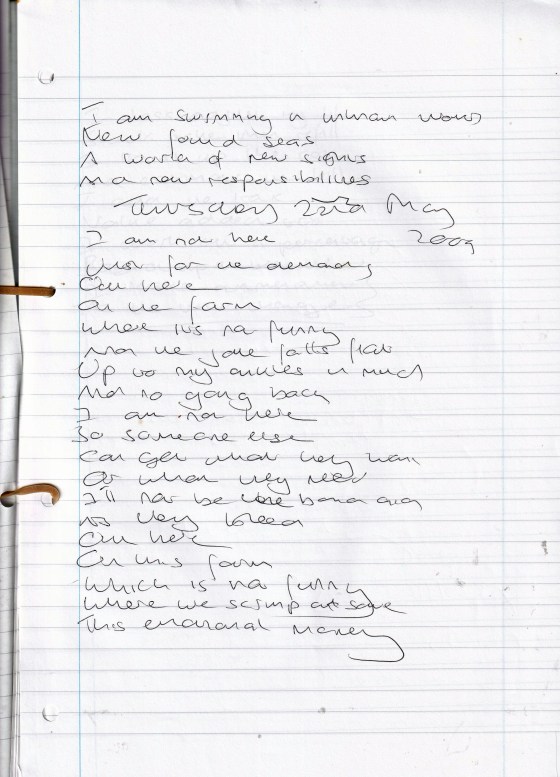 I am swimming in
New found seas
A world of new sights
And new responsibilities
May
2009
I am not here
for the
Out here
On the farm
Where it's not funny
And the joke falls flat
Up to my ankles in mud
And no going back
I am not here
So someone else
Can get what they want
Or what they need
I'll not be
they bleed
Out here
On this farm
Which is not funny
Where we scrimp and save
This money